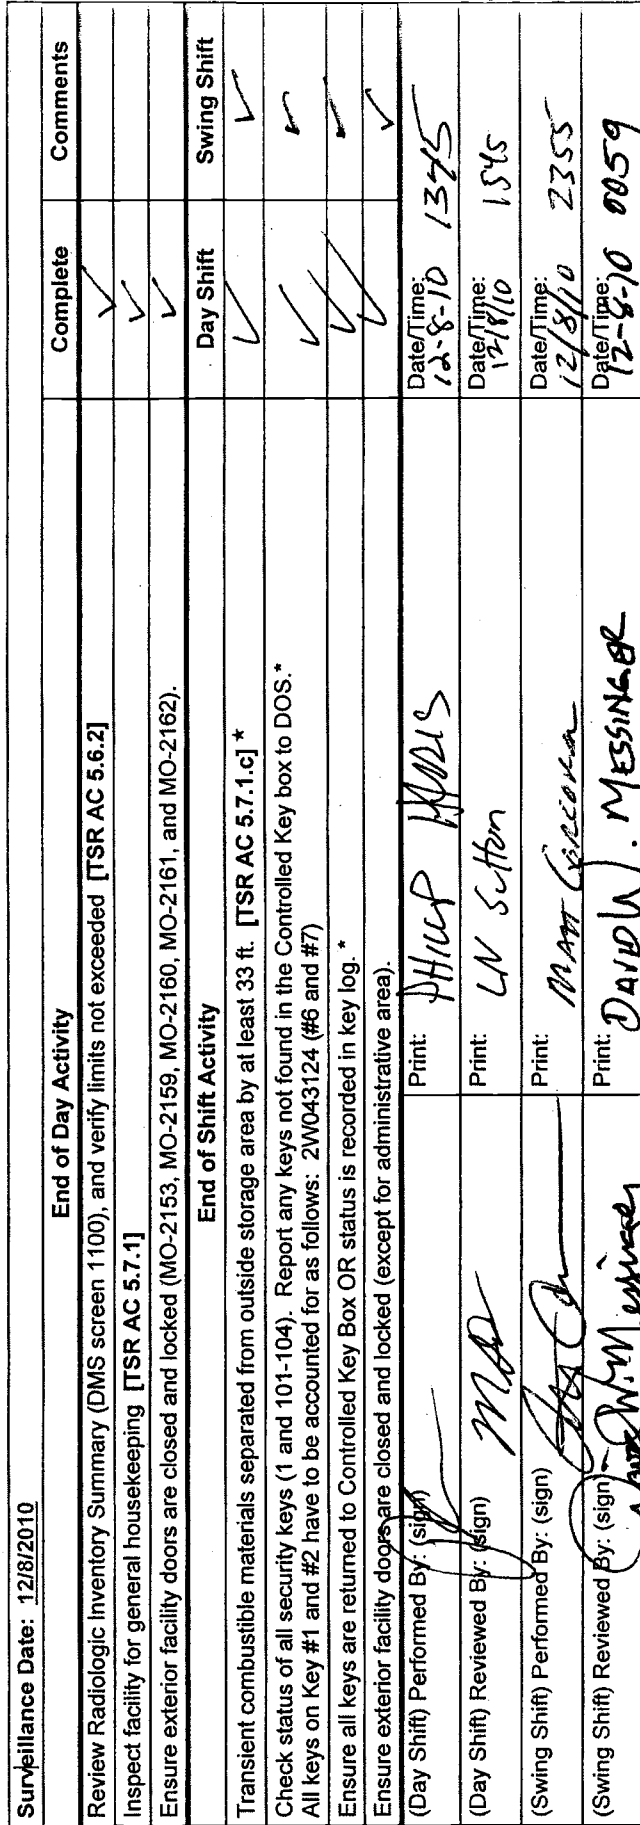 Surveillance Date: 12/8/2010
End of Day Activity Complete Comments
Review Radiologic Inventory Summary (DMS screen 1100), and verify limits not exceeded [TSR AC 5.6.2] ✓
Inspect facility for general housekeeping [TSR AC 5.7.1] ✓
Ensure exterior facility doors are closed and locked (MO-2153, MO-2159, MO-2160, MO-2161, and MO-2162). ✓
End of Shift Activity Day Shift Swing Shift
Transient combustible materials separated from outside storage area by at least 33 ft. [TSR AC 5.7.1.c] * ✓ ✓
Check status of all security keys (1 and 101-104). Report any keys not found in the Controlled Key box to DOS.* ✓ ✓
All keys on Key #1 and #2 have to be accounted for as follows: 2W043124 (#6 and #7)
Ensure all keys are returned to Controlled Key Box OR status is recorded in key log.* ✓ ✓
Ensure exterior facility doors are closed and locked (except for administrative area). ✓ ✓
(Day Shift) Performed By: (sign) Print: PHILLIP HARRIS Date/Time: 12-8-10 1345
(Day Shift) Reviewed By: (sign) Print: LN Sutton Date/Time: 12/8/10 1545
(Swing Shift) Performed By: (sign) Print: MATT Date/Time: 12/8/10 2355
(Swing Shift) Reviewed By: (sign) Print: DAVID W. MESSINGER Date/Time: 12-8-10 0059